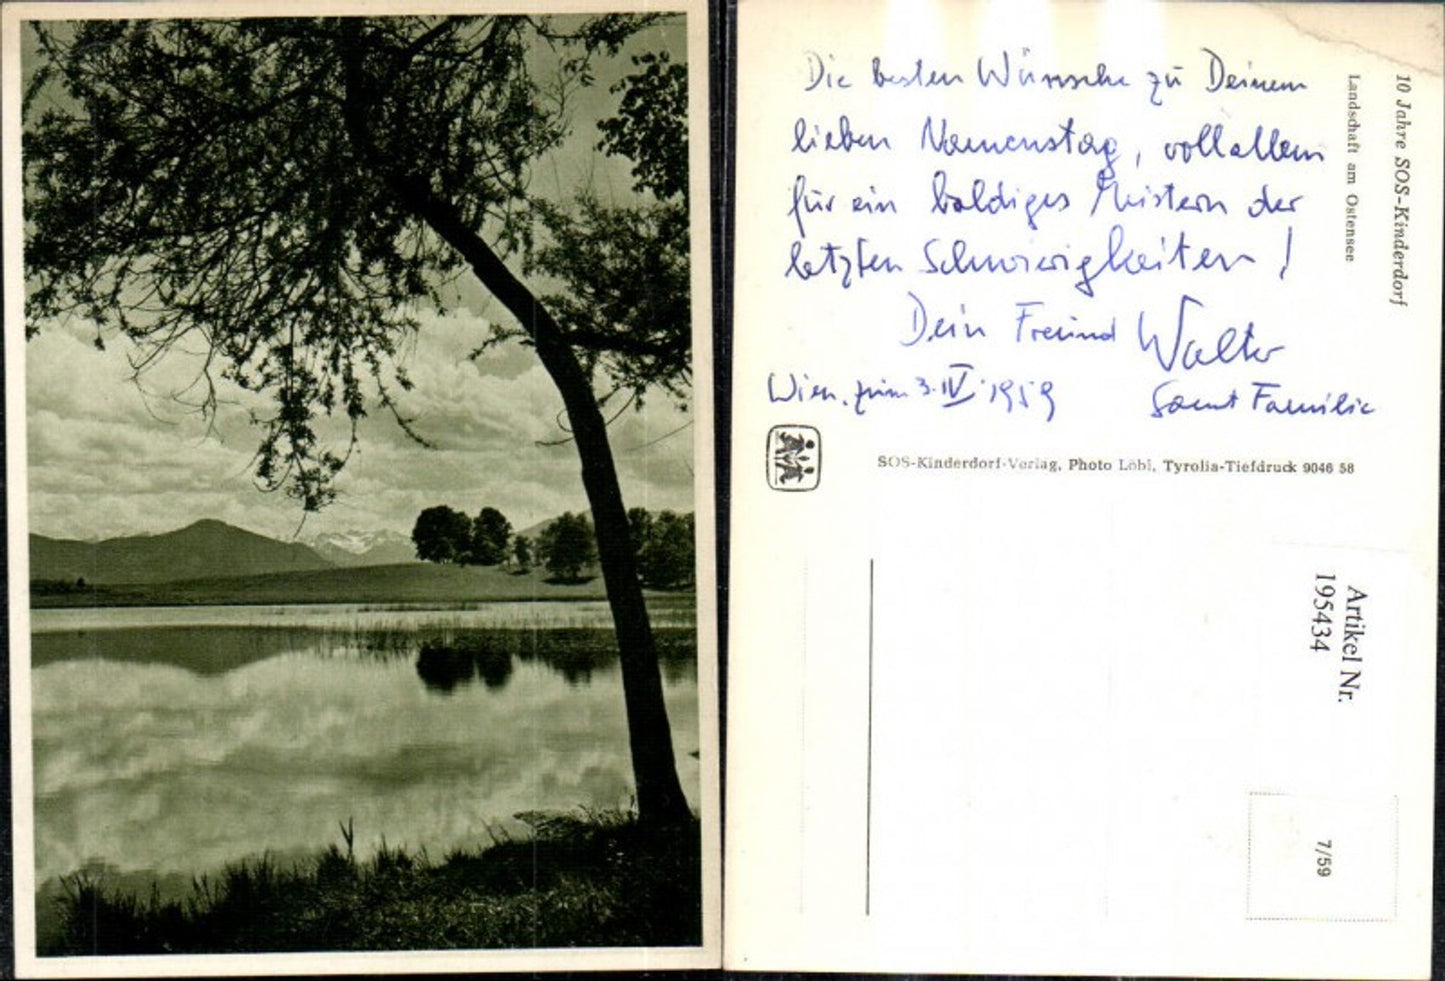 Die besten Wünsche zu Deinem
lieben Namenstag, vor allem
für ein baldiges Meistern der
letzten Schwierigkeiten!
Dein Freund Walter
Samt Familie
Wien, zum 3. IV. 1959
10 Jahre SOS-Kinderdorf
Landschaft am Ostensee
SOS-Kinderdorf-Verlag, Photo Löbl, Tyrolia-Tiefdruck 9046 58
Artikel Nr.
195434
7/59